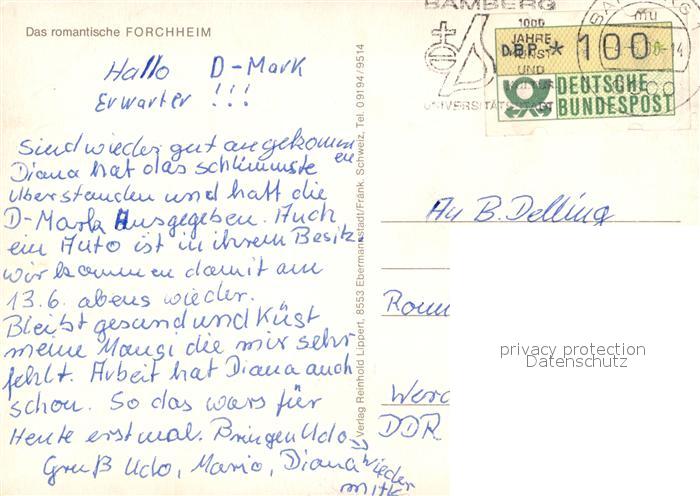 Das romantische FORCHHEIM
Hallo D-Mark
Erwarter !!!
Sind wieder gut angekommen
Diana hat das schlimmste
überstanden und hatt die
D-Mark Ausgegeben. Auch
ein Auto ist in ihrem Besitz
wir kommen damit am
13.6. abens wieder.
Bleibt gesund und Küst
meine Maugi die mir sehr
fehlt. Arbeit hat Diana auch
schon. So das wars für
Heute erst mal. Bringen Udo
Gruß Udo, Mario, Diana wieder
mit
Verlag Reinhold Lippert, 8553 Ebermannstadt/Fränk. Schweiz, Tel. 09194/9514
BAMBERG
1000
JAHRE
KUNST
UND
UNIVERSITÄTSSTADT
DBP * 100
DEUTSCHE
BUNDESPOST
An B. Delling
DDR
privacy protection
Datenschutz